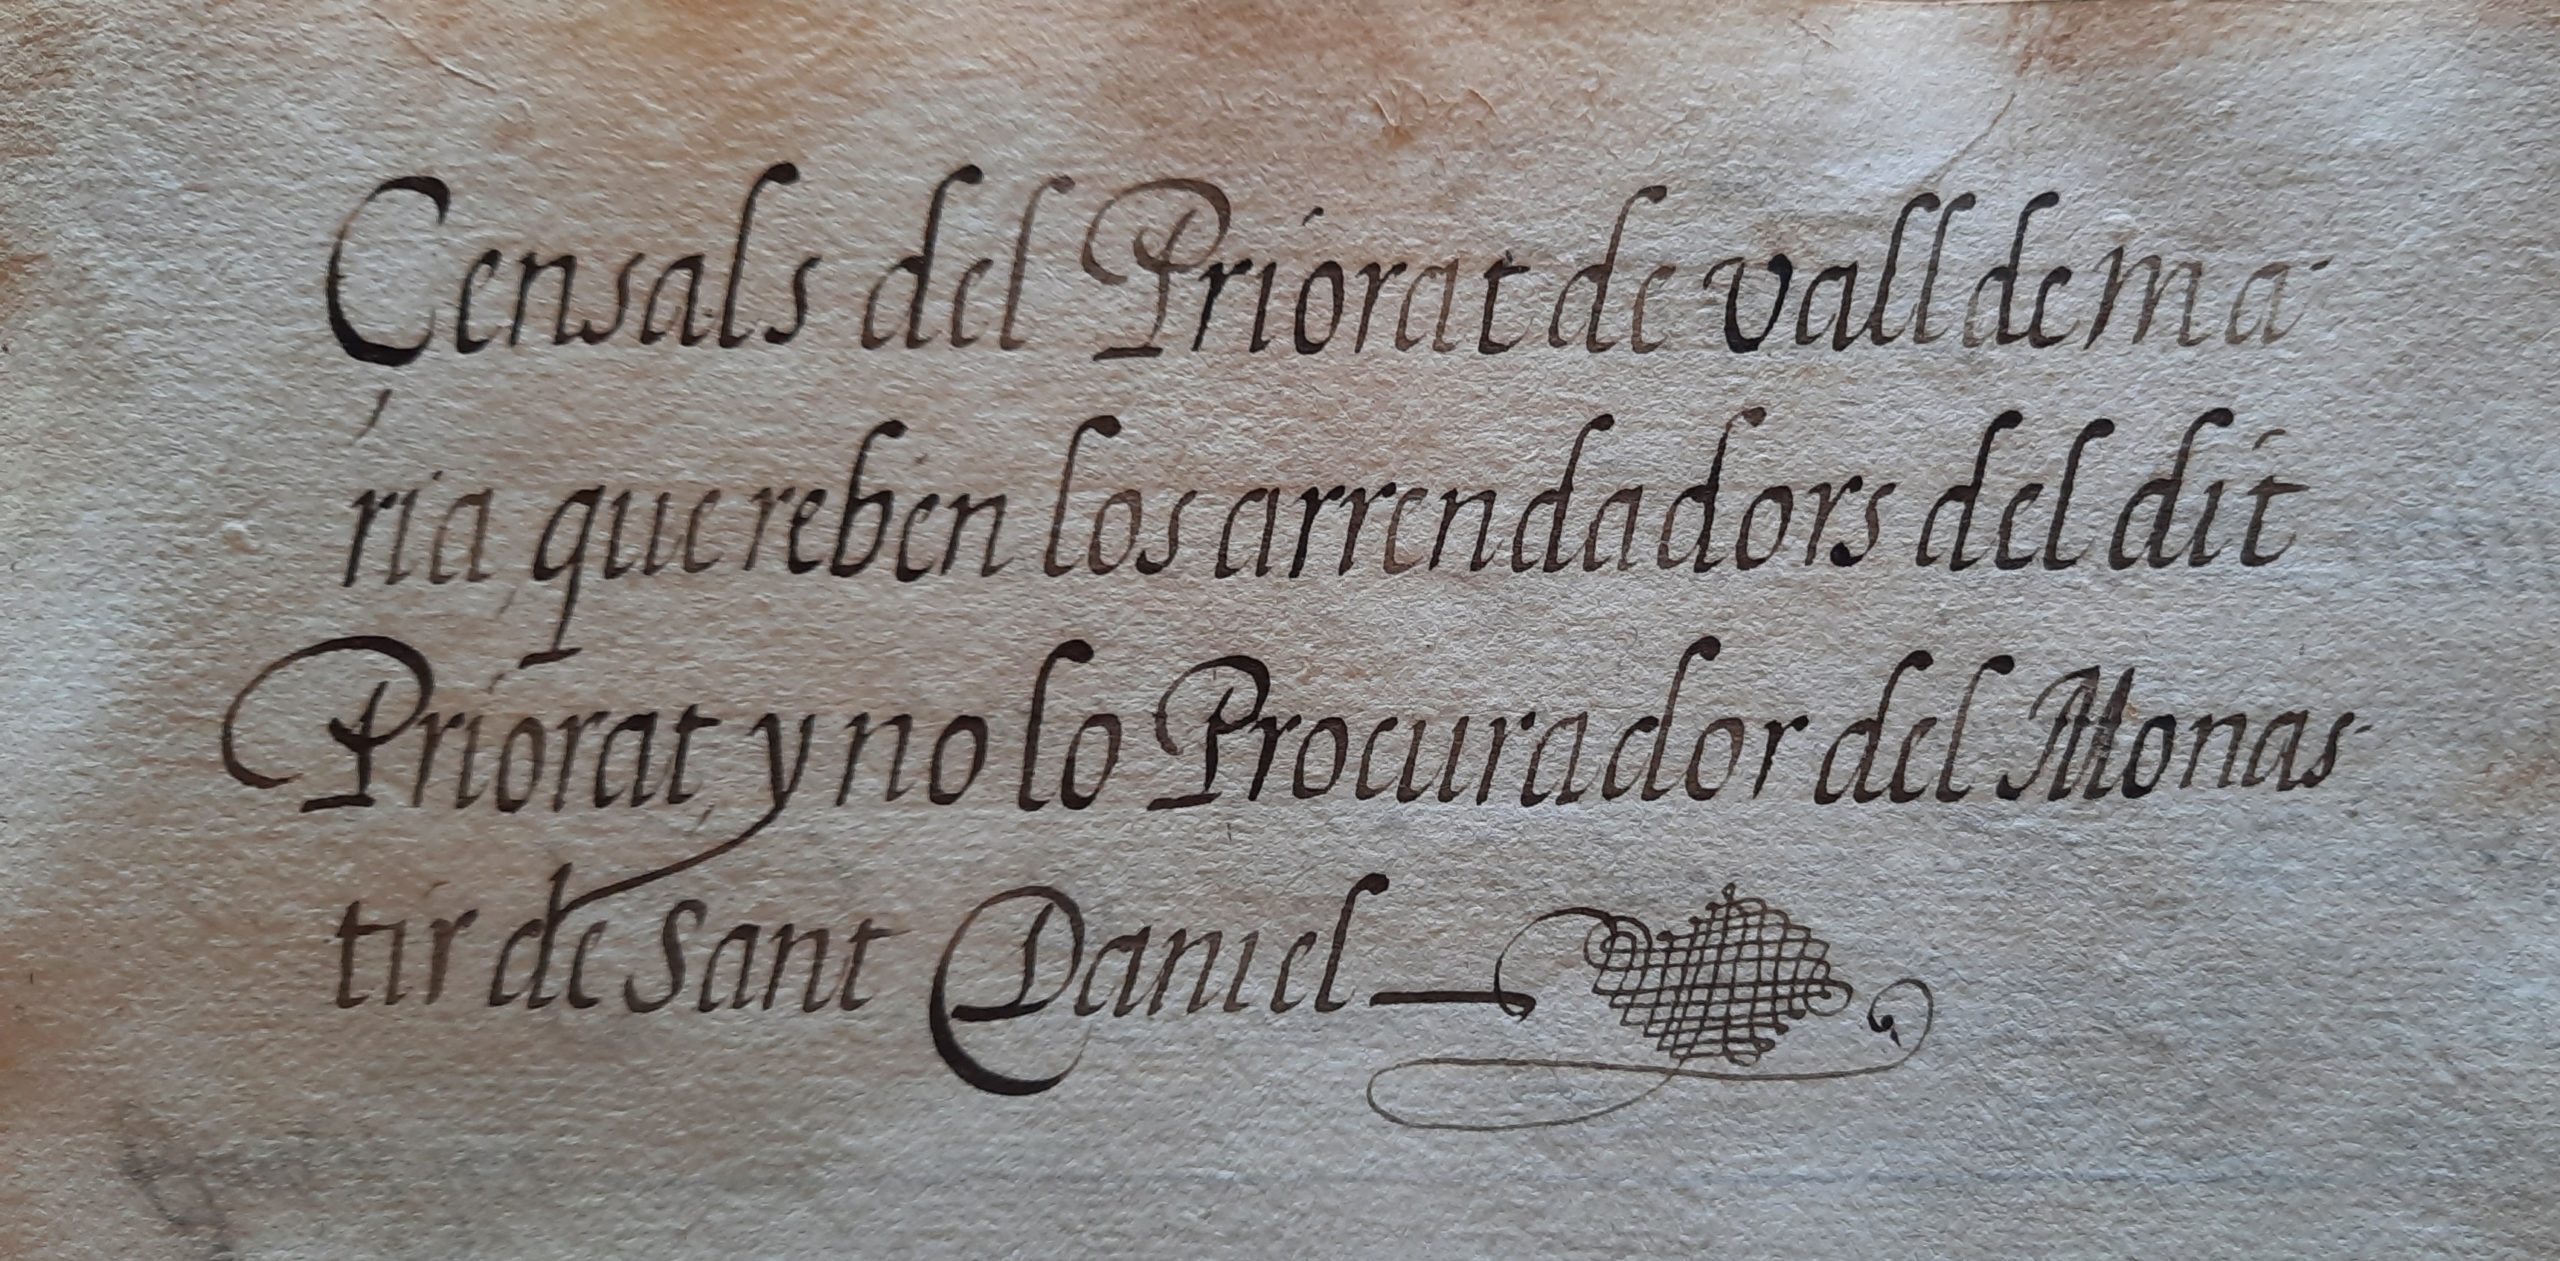 Censals del Priorat de valldema-
ria que reben los arrendadors del dit
Priorat y no lo Procurador del Monas-
tir de Sant Daniel